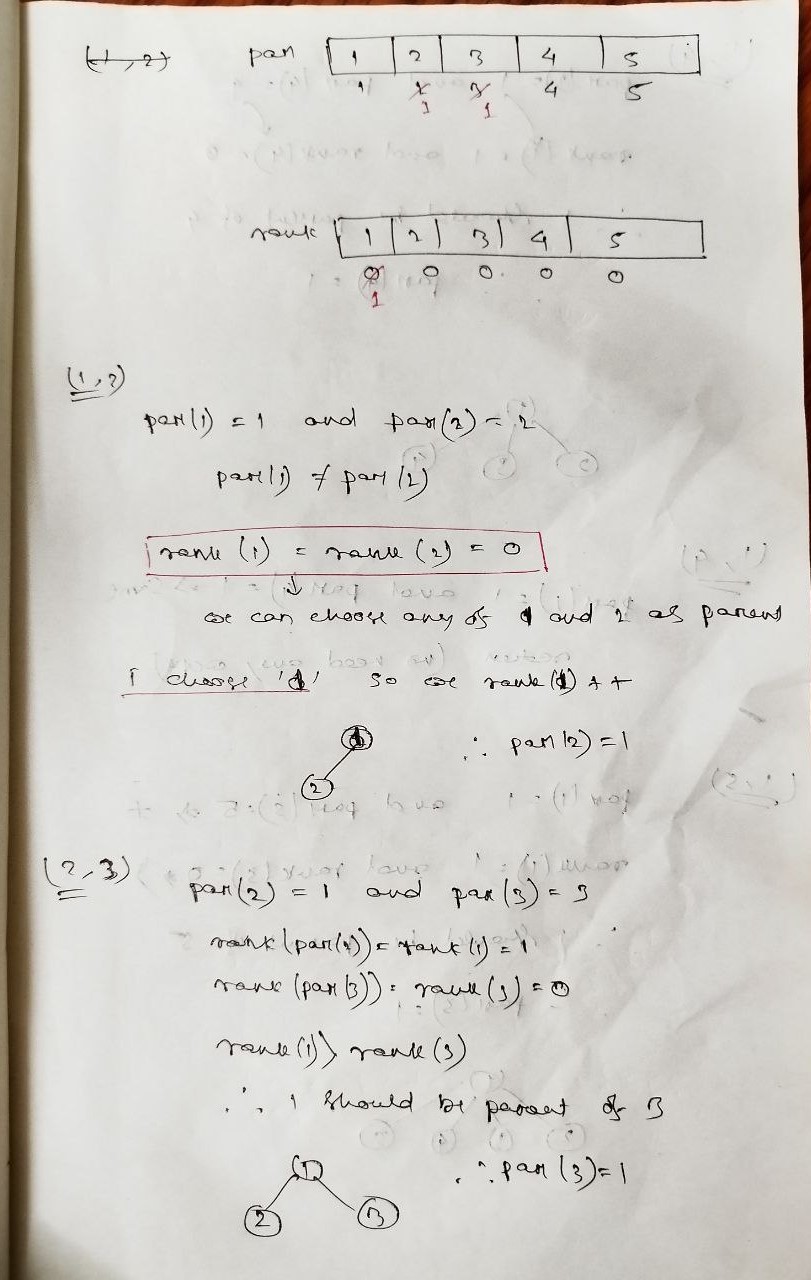 (1,2) par 1 2 3 4 5
1 2 3 4 5
1 1
rank 1 2 3 4 5
0 0 0 0 0
1
(1,2)
par(1) = 1 and par(2) = 2
par(1) ≠ par(2)
rank (1) = rank (2) = 0
↓
we can choose any of 1 and 2 as parent
I choose '1' so we rank(1)++
1
2
∴ par(2)=1
(2,3)
par(2) = 1 and par(3) = 3
rank(par(2)) = rank(1) = 1
rank(par(3)) = rank(3) = 0
rank(1) > rank(3)
∴ 1 should be parent of 3
1
2 3
∴ par(3)=1